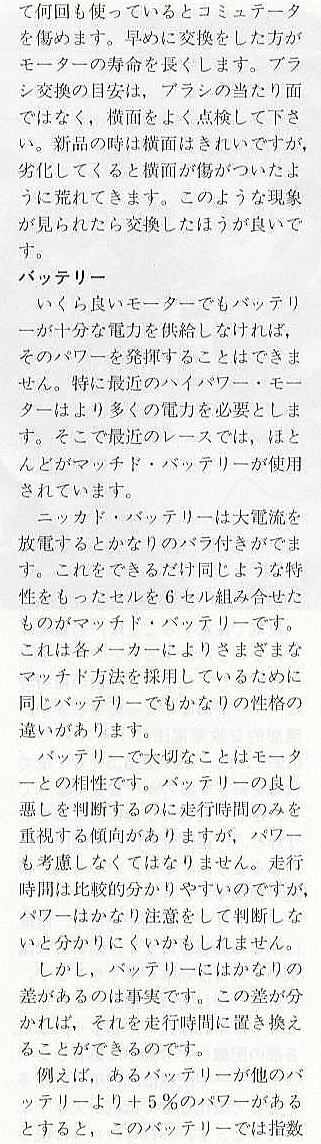 て何回も使っているとコミュテータ
を傷めます。早めに交換をした方が
モーターの寿命を長くします。ブラ
シ交換の目安は，ブラシの当たり面
ではなく，横面をよく点検して下さ
い。新品の時は横面はきれいですが，
劣化してくると横面が傷がついたよ
うに荒れてきます。このような現象
が見られたら交換したほうが良いで
す。
バッテリー
　いくら良いモーターでもバッテリ
ーが十分な電力を供給しなければ，
そのパワーを発揮することはできま
せん。特に最近のハイパワー・モー
ターはより多くの電力を必要としま
す。そこで最近のレースでは，ほと
んどがマッチド・バッテリーが使用
されています。
　ニッカド・バッテリーは大電流を
放電するとかなりのバラ付きがでま
す。これをできるだけ同じような特
性をもったセルを6セル組み合せた
ものがマッチド・バッテリーです。
これは各メーカーによりさまざまな
マッチド方法を採用しているために
同じバッテリーでもかなりの性格の
違いがあります。
　バッテリーで大切なことはモータ
ーとの相性です。バッテリーの良し
悪しを判断するのに走行時間のみを
重視する傾向がありますが，パワー
も考慮しなくてはなりません。走行
時間は比較的分かりやすいのですが，
パワーはかなり注意をして判断しな
いと分かりにくいかもしれません。
　しかし，バッテリーにはかなりの
差があるのは事実です。この差が分
かれば，それを走行時間に置き換え
ることができるのです。
　例えば，あるバッテリーが他のバ
ッテリーより＋5％のパワーがある
とすると，このバッテリーでは指数